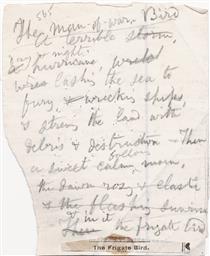 565
The Man-of-war Bird
A terrible storm,
day & night
hurricane,
was lashing the sea to
fury wrecking ships,
& strewing the land with
debris & destruction — Then
follows
a sweet calm morn,
the dawn rosy & elastic
& the flashing sunrise
& in it the frigate bird
The Frigate Bird.